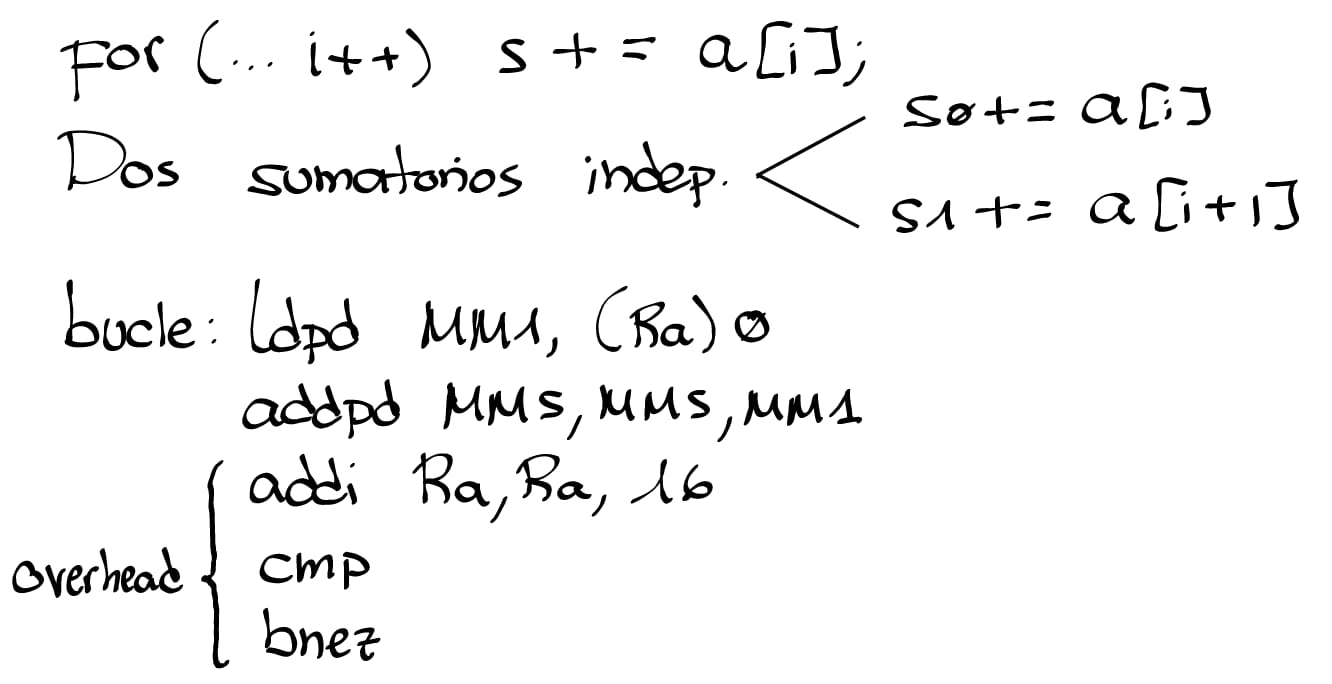 For (... i++) s += a[i];
s0+= a[i]
Dos sumatorios indep.
s1+= a[i+1]
bucle: ldpd MM1, (Ra)0
addpd MM5, MM5, MM1
addi Ra, Ra, 16
overhead cmp
bnez